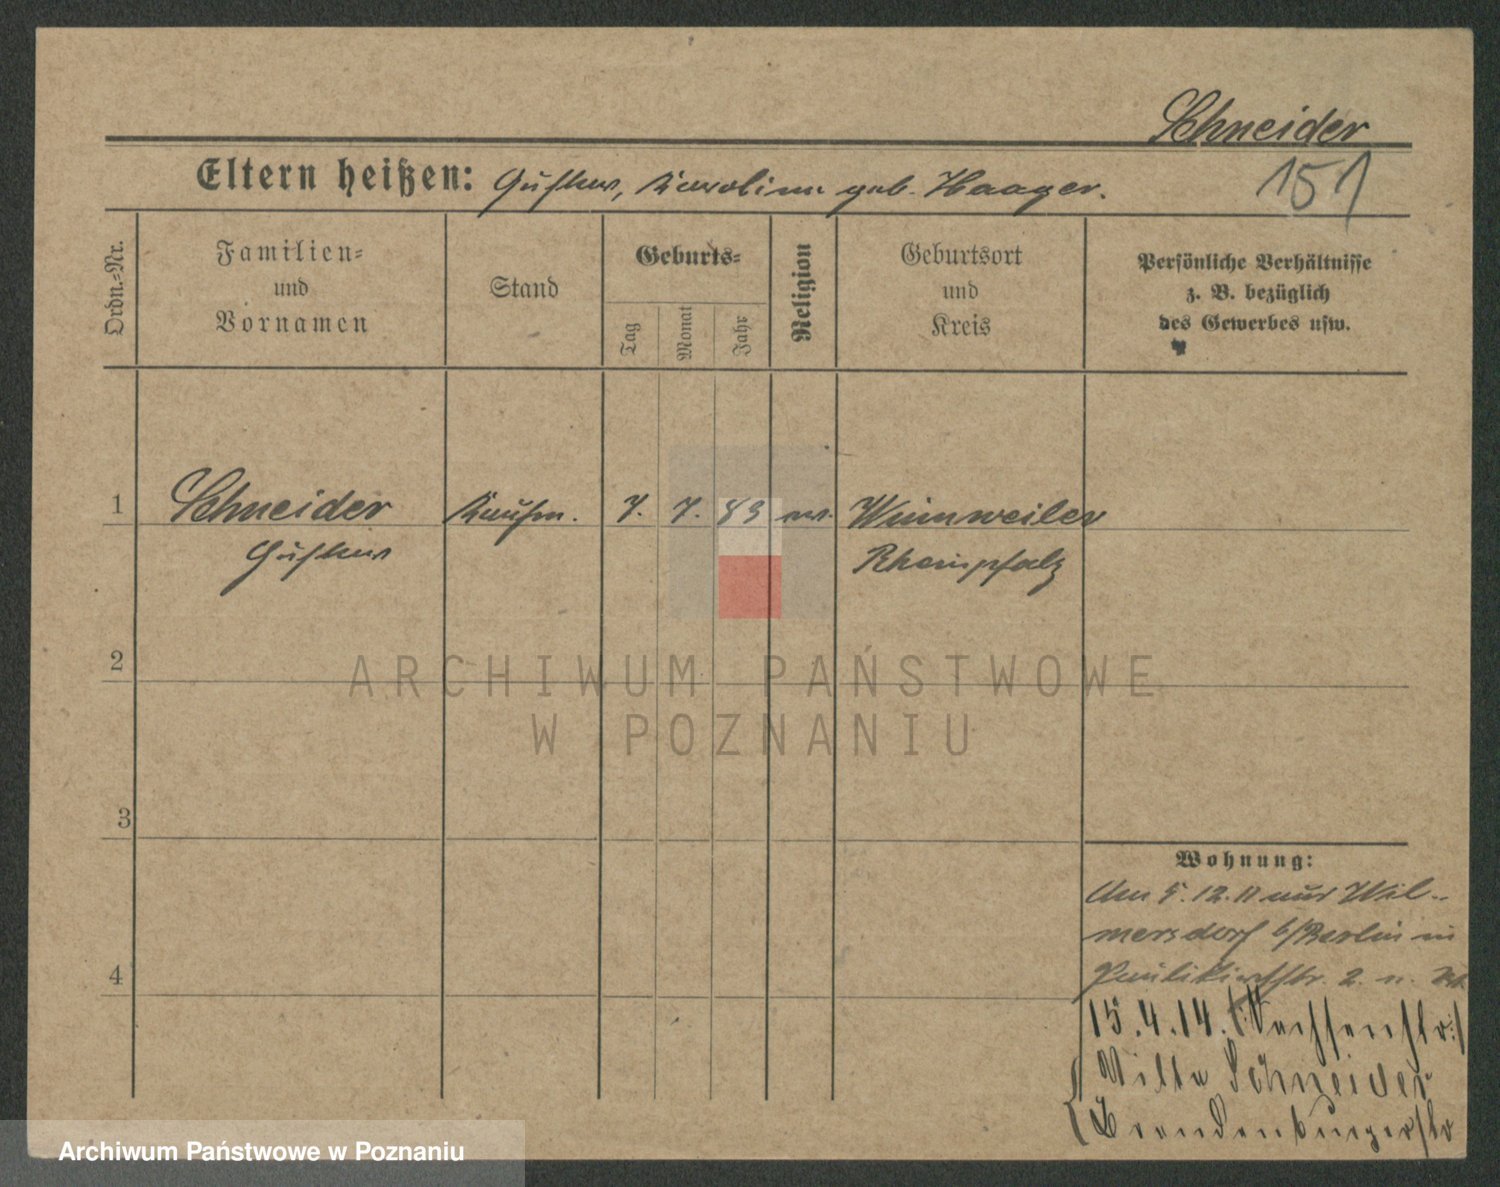 Schneider
Eltern heißen: Gustav, Karoline geb. Haager.
151
Ordn.-Nr.
Familien-
und
Vornamen
Stand
Geburts-
Tag
Monat
Jahr
Religion
Geburtsort
und
Kreis
Persönliche Verhältnisse
z. B. bezüglich
des Gewerbes usw.
1 Schneider Kaufm. 7. 7. 83 ev. Winnweiler
Gustav Rheinpfalz
2
ARCHIWUM PAŃSTWOWE
W POZNANIU
3
Wohnung:
Am 5.12.11 aus Wil-
mersdorf b/Berlin in
4
Paulikirchstr. 2. n.
15.4.14.
Villa Schneider
Brandenburgerstr
Archiwum Państwowe w Poznaniu